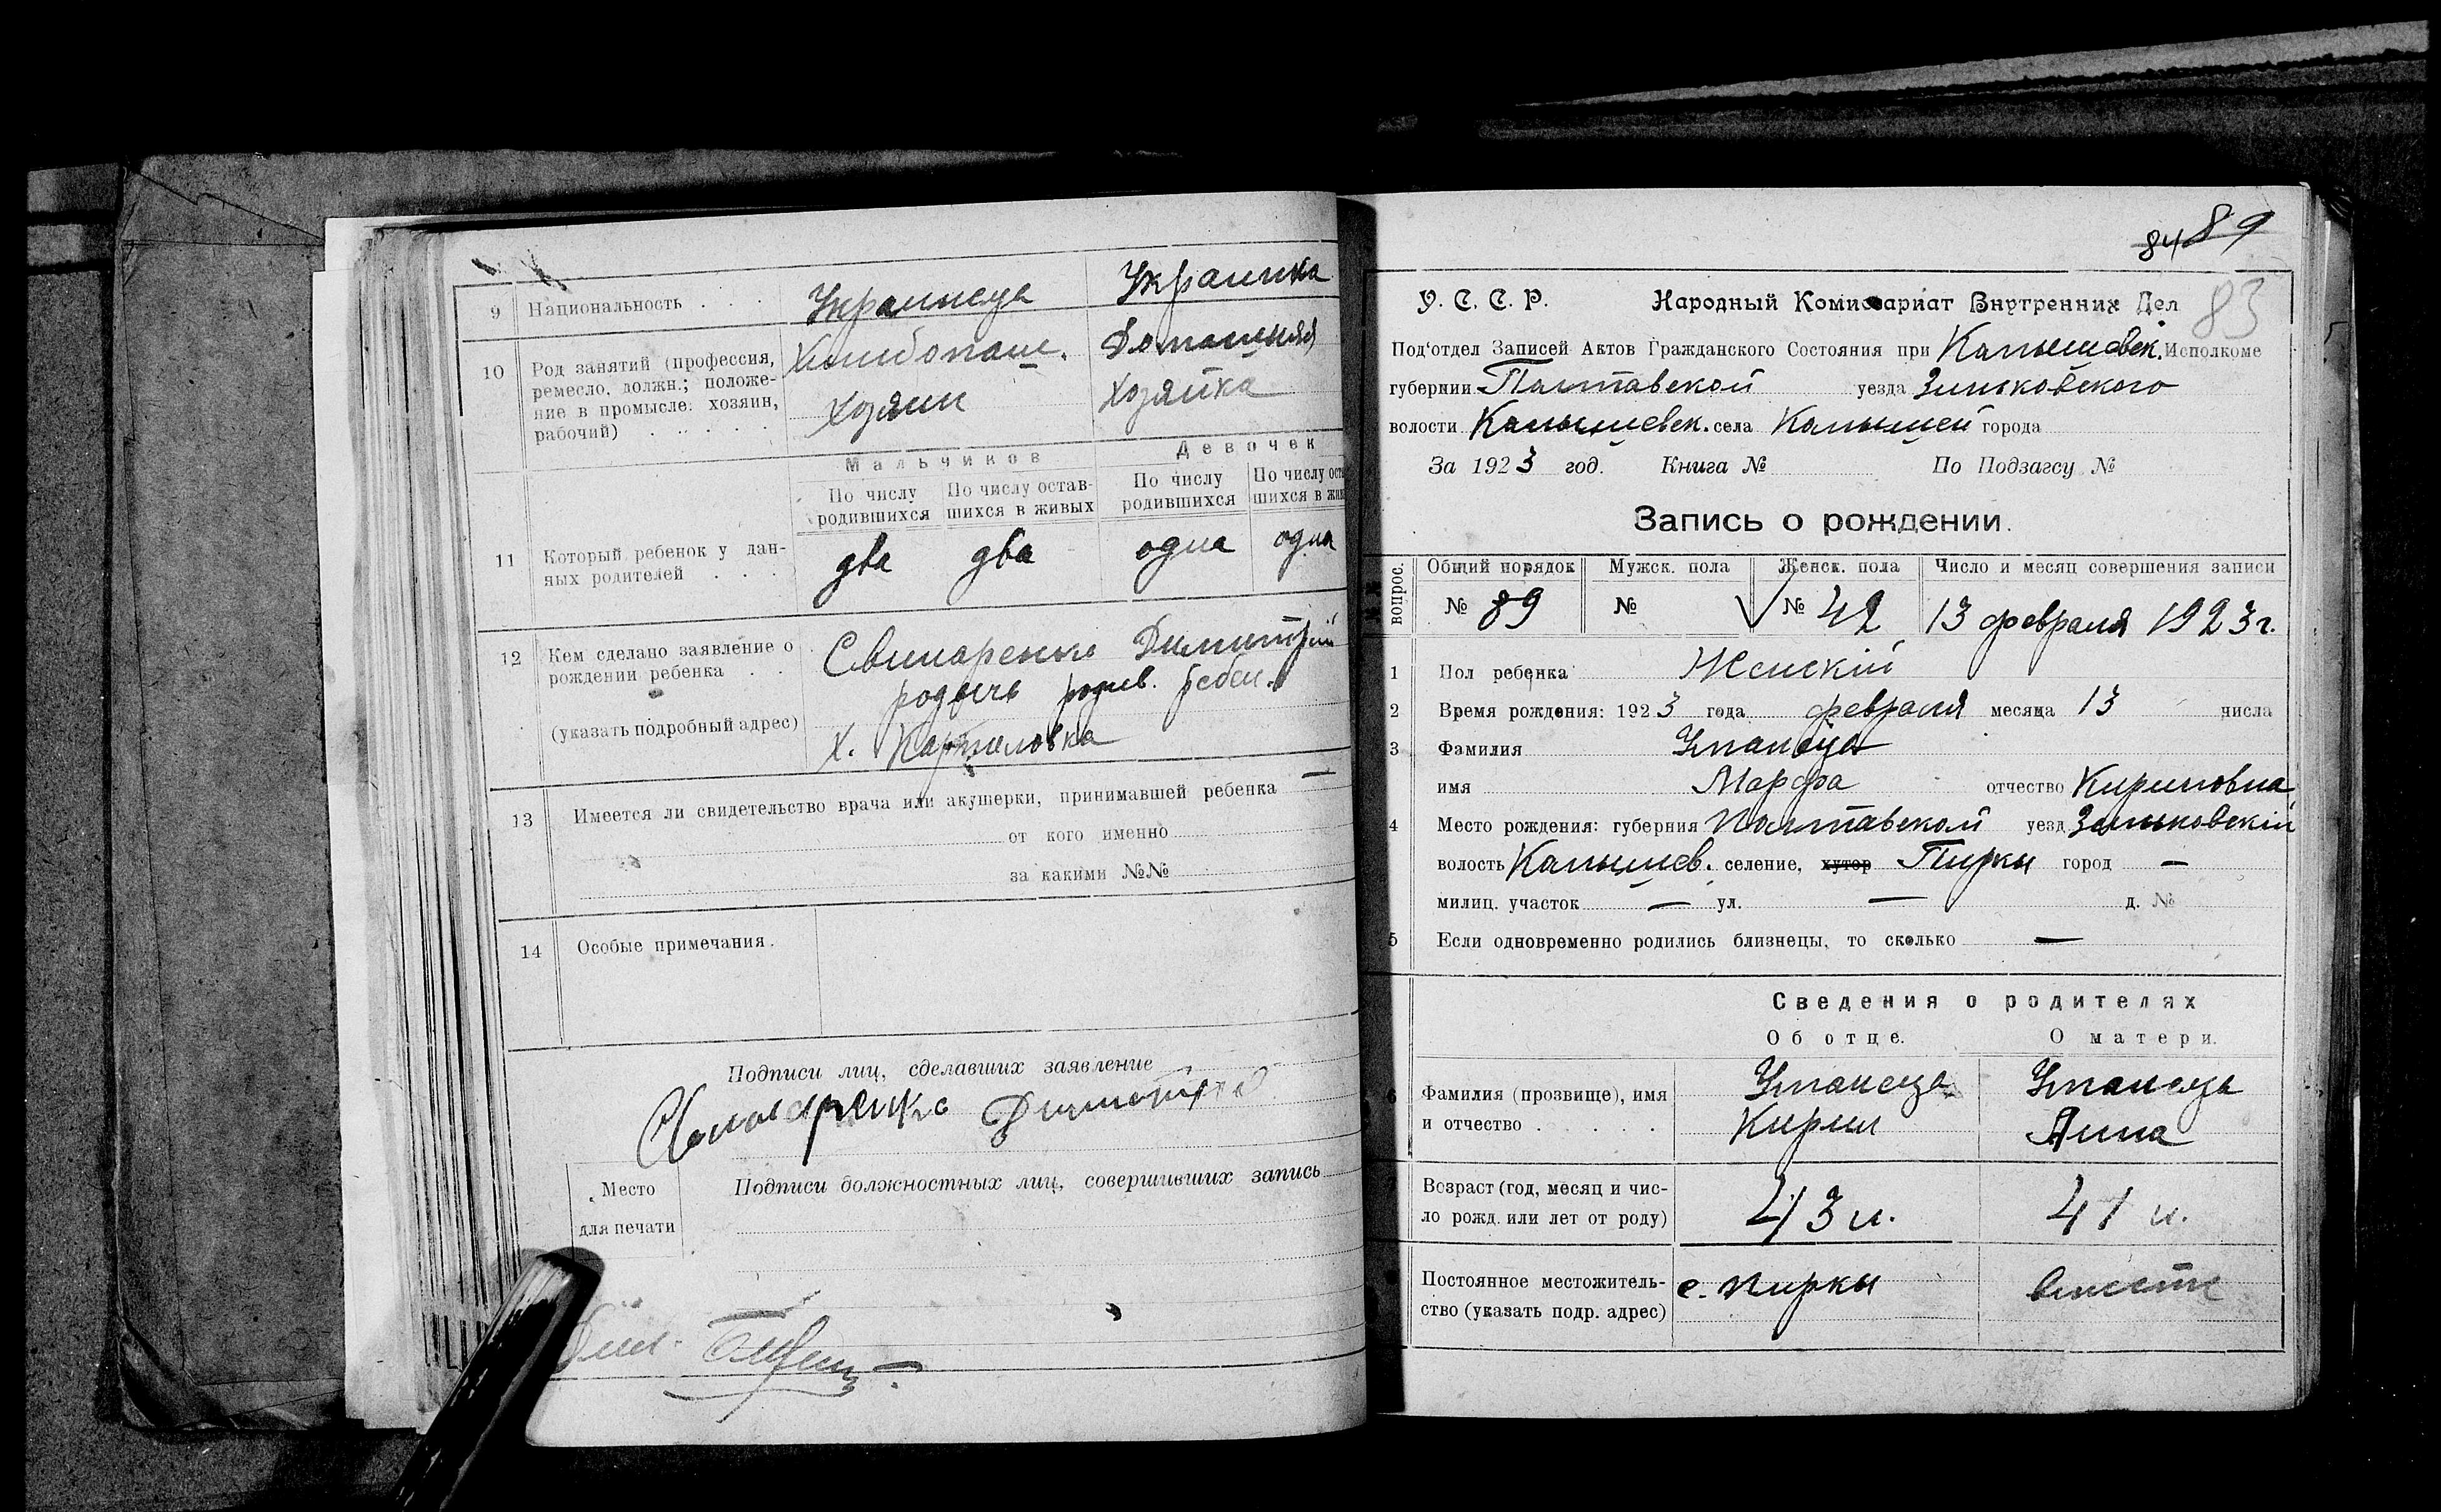 9 Национальность . . . Украинец Украинка
10 Род занятий (профессия, ремесло, должн.; положе-
ние в промысле: хозяин, рабочий) . . . . .
Хлибопаш. Домашняя
Хозяин Хозяйка
Мальчиков Девочек
По числу родившихся По числу остав-
шихся в живых По числу родившихся По числу оста
шихся в жив
11 Который ребенок у дан-
ных родителей . . . два два одна одна
12 Кем сделано заявление о
рождении ребенка . .
(указать подробный адрес)
Свинаренко Димитрий
родичь родив. ребен.
х.
13 Имеется ли свидетельство врача или акушерки, принимавшей ребенка —
от кого именно
за какими №№
14 Особые примечания.
Подписи лиц, сделавших заявление
Димитрий
Место
для печати
Подписи должностных лиц, совершивших запись
84 89
83
У. С. С. Р. Народный Комиссариат Внутренних Дел
Под'отдел Записей Актов Гражданского Состояния при Камышевск. Исполкоме
губернии Полтавской уезда Зиньковского
волости Камышевск. села Камышей города
За 1923 год. Книга № По Подзагсу №
Запись о рождении.
вопрос.
Общий порядок Мужск. пола Женск. пола Число и месяц совершения записи
№ 89 № № 42 13 февраля 1923 г.
1 Пол ребенка Женскій
2 Время рождения: 1923 года февраля месяца 13 числа
3 Фамилия Уманець
имя Марфа отчество Кириловна
4 Место рождения: губерния Полтавской уезд Зиньковскій
волость Камышев. селение, хутор Пирки город —
милиц. участок — ул. — д. №
5 Если одновременно родились близнецы, то сколько —
Сведения о родителях
Об отце. О матери.
6 Фамилия (прозвище), имя
и отчество . . . . .
Уманець Уманець
Кирил Анна
Возраст (год, месяц и чис-
ло рожд. или лет от роду) 43 л. 41 л.
Постоянное местожитель-
ство (указать подр. адрес) с. Пирки вместе